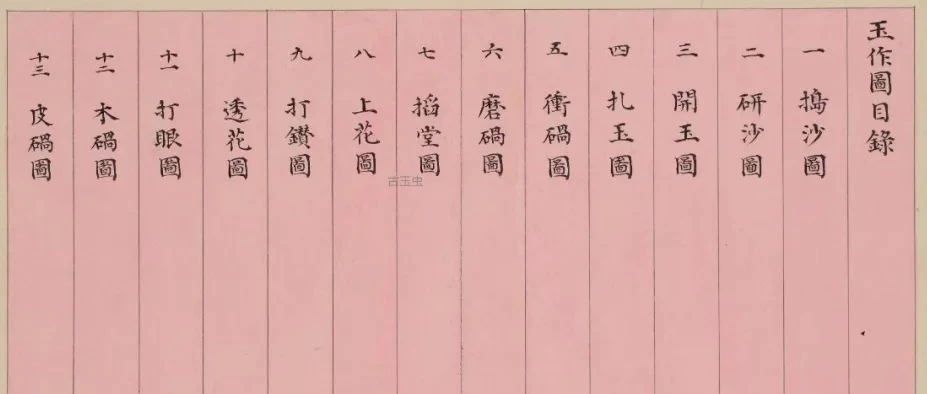 玉作圖目錄
一 搗沙圖
二 研沙圖
三 開玉圖
四 扎玉圖
五 衝碢圖
六 磨碢圖
七 搯堂圖
八 上花圖
九 打鑽圖
十 透花圖
十一 打眼圖
十二 木碢圖
十三 皮碢圖
古玉虫